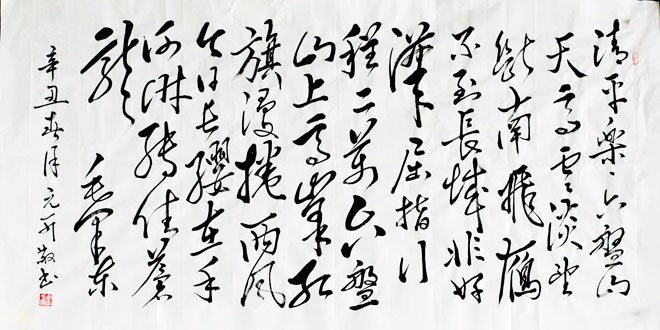 清平樂、六盤山
天高雲淡望
斷南飛鴈
不到長城非好
漢屈指行
程二萬六盤
山上高峰紅
旗漫捲西風
今日長纓在手
何時縛住蒼
龍 毛澤東
辛丑春月元敬書